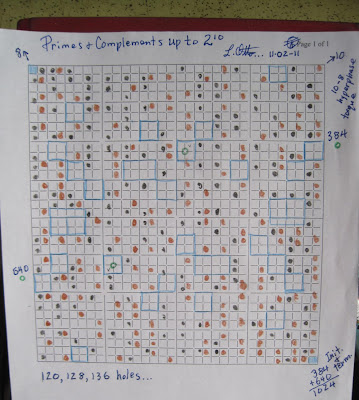 Primes + Complements up to 2^10
Page 1 of 1
8
L. Otto... 11-02-11
10
10-8
hyperphase
torque
384
640
Init.
384
+640
1024
120, 128, 136 holes...